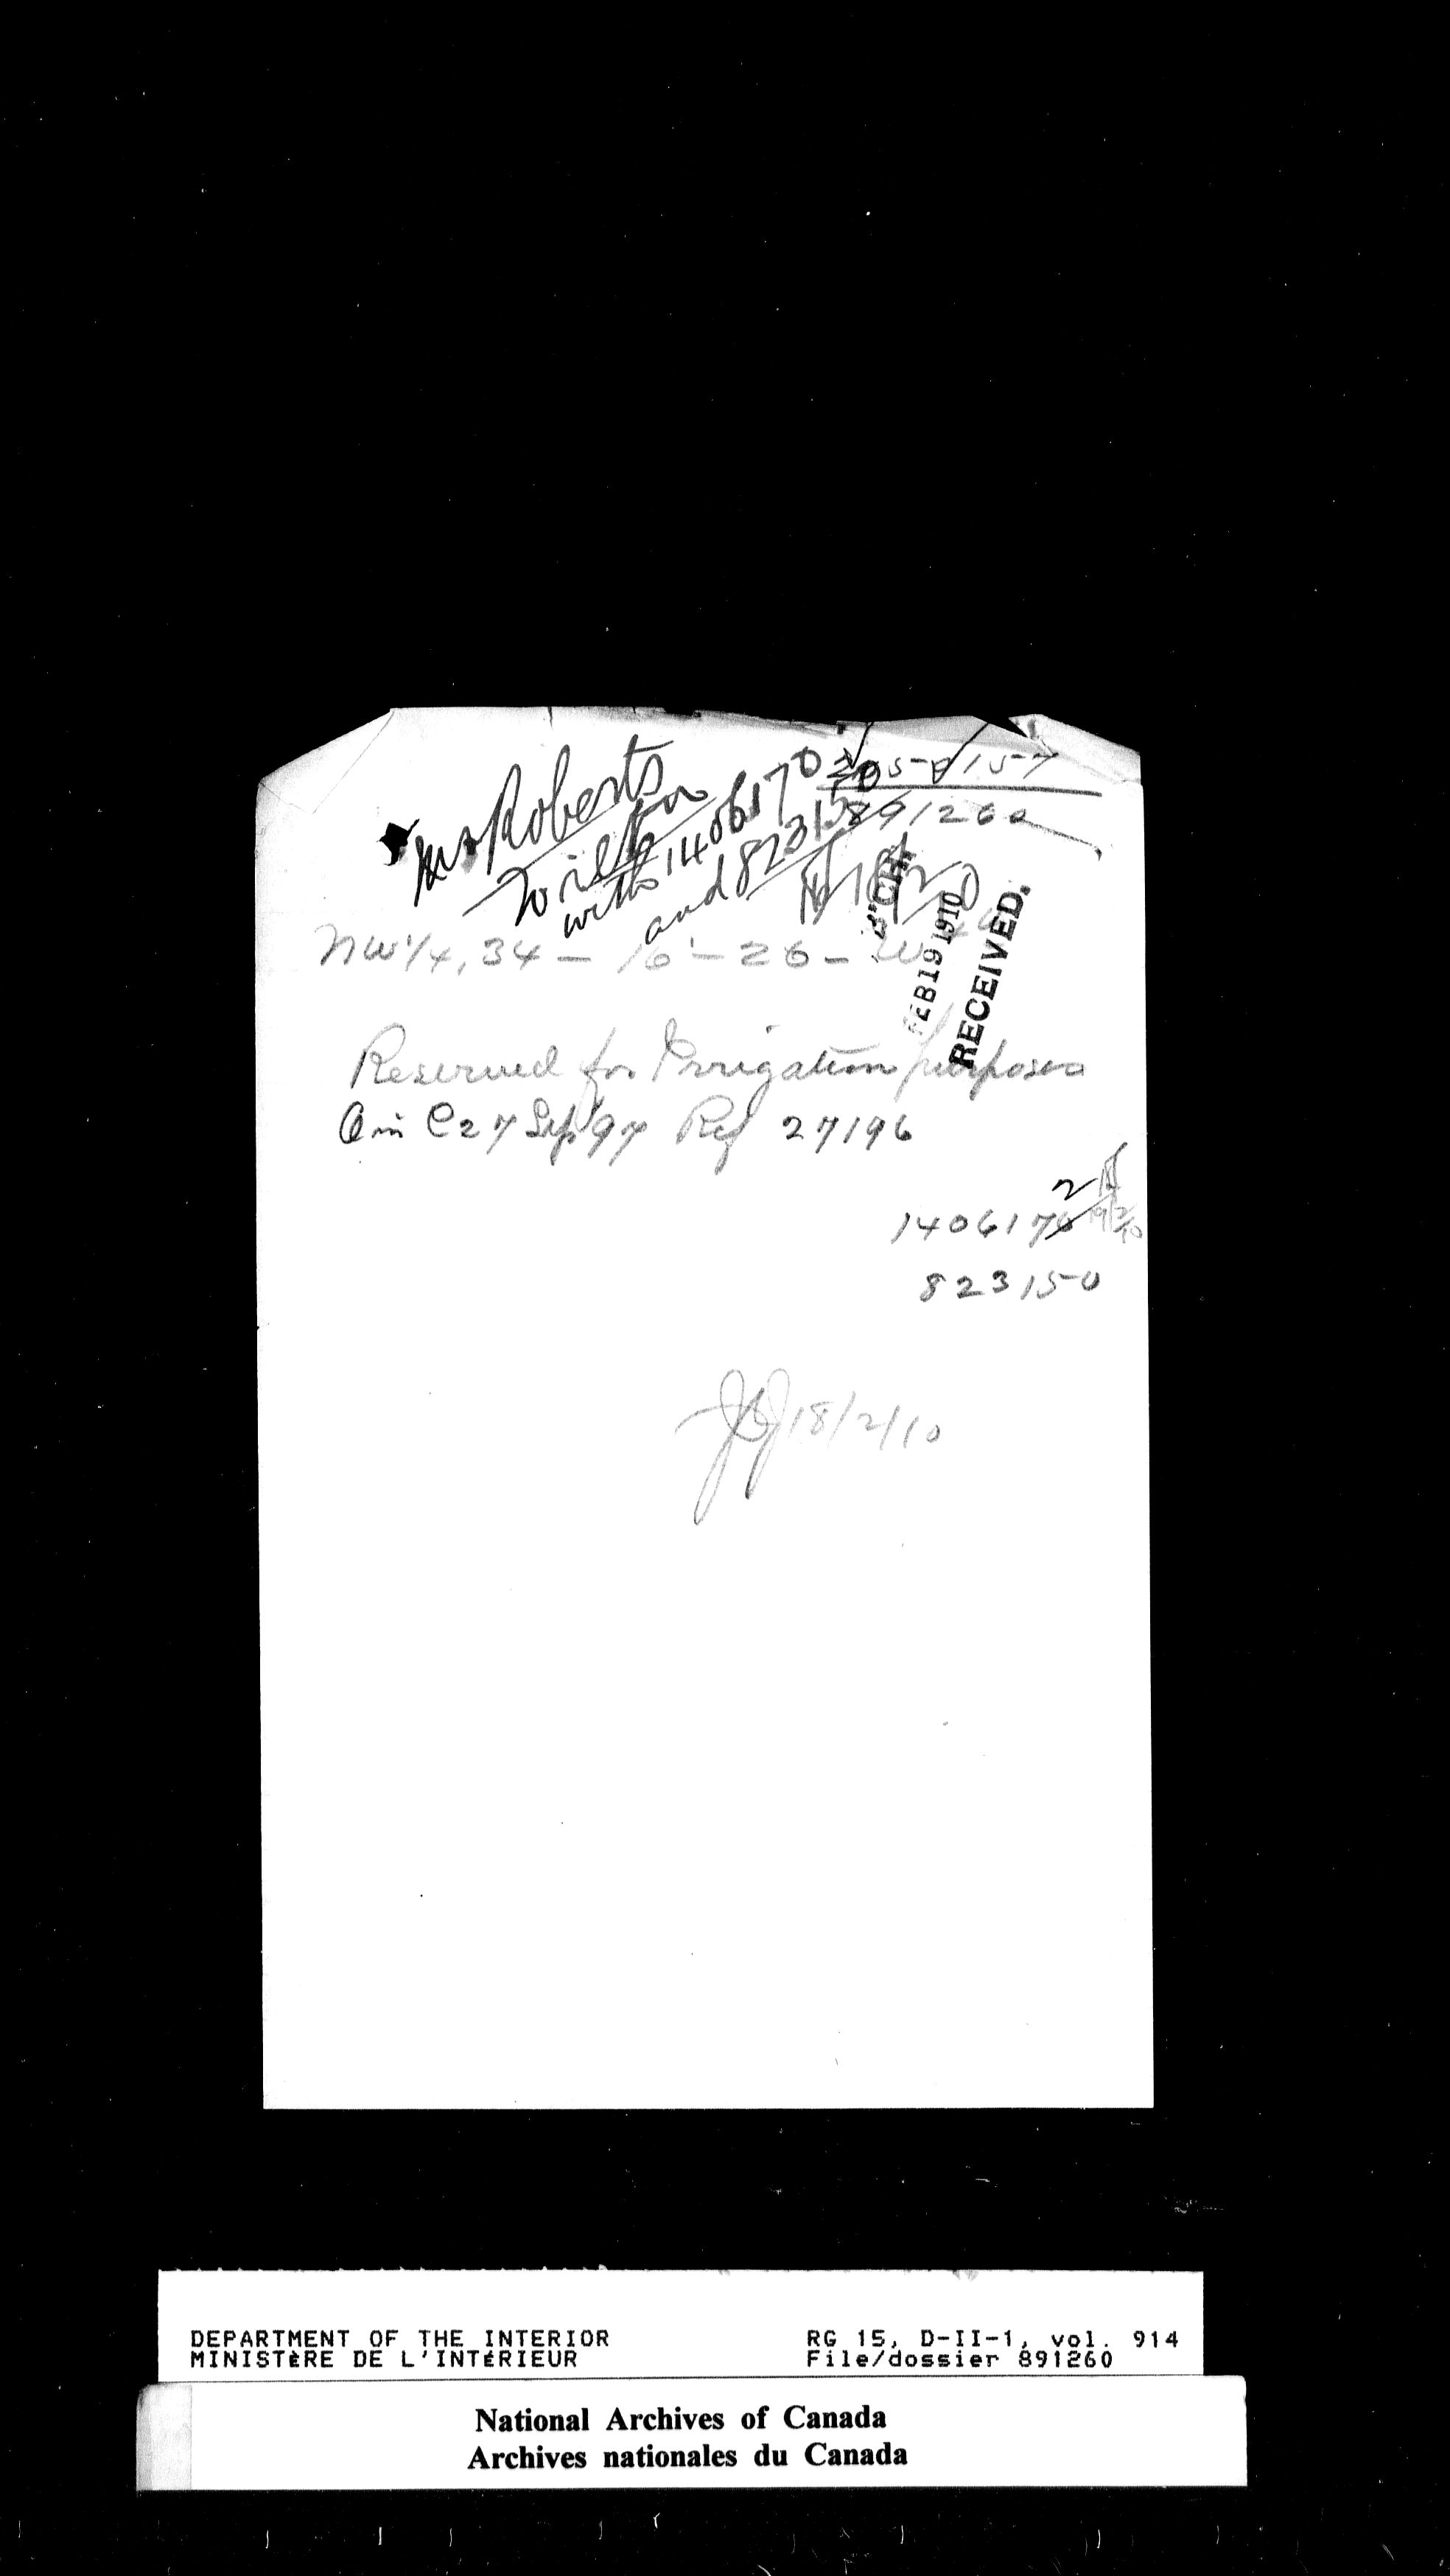 Mr Roberts
with 1406170
and 823150
891260
B'CH.
FEB 19 1910
RECEIVED.
NW 1/4, 34 - 16 - 26 - W
Reserved for Irrigation purposes
O in C 27 Sep '97 Ref 27196
2
1406170
823150
18/2/10
DEPARTMENT OF THE INTERIOR
MINISTÈRE DE L'INTÉRIEUR
RG 15, D-II-1, vol. 914
File/dossier 891260
National Archives of Canada
Archives nationales du Canada